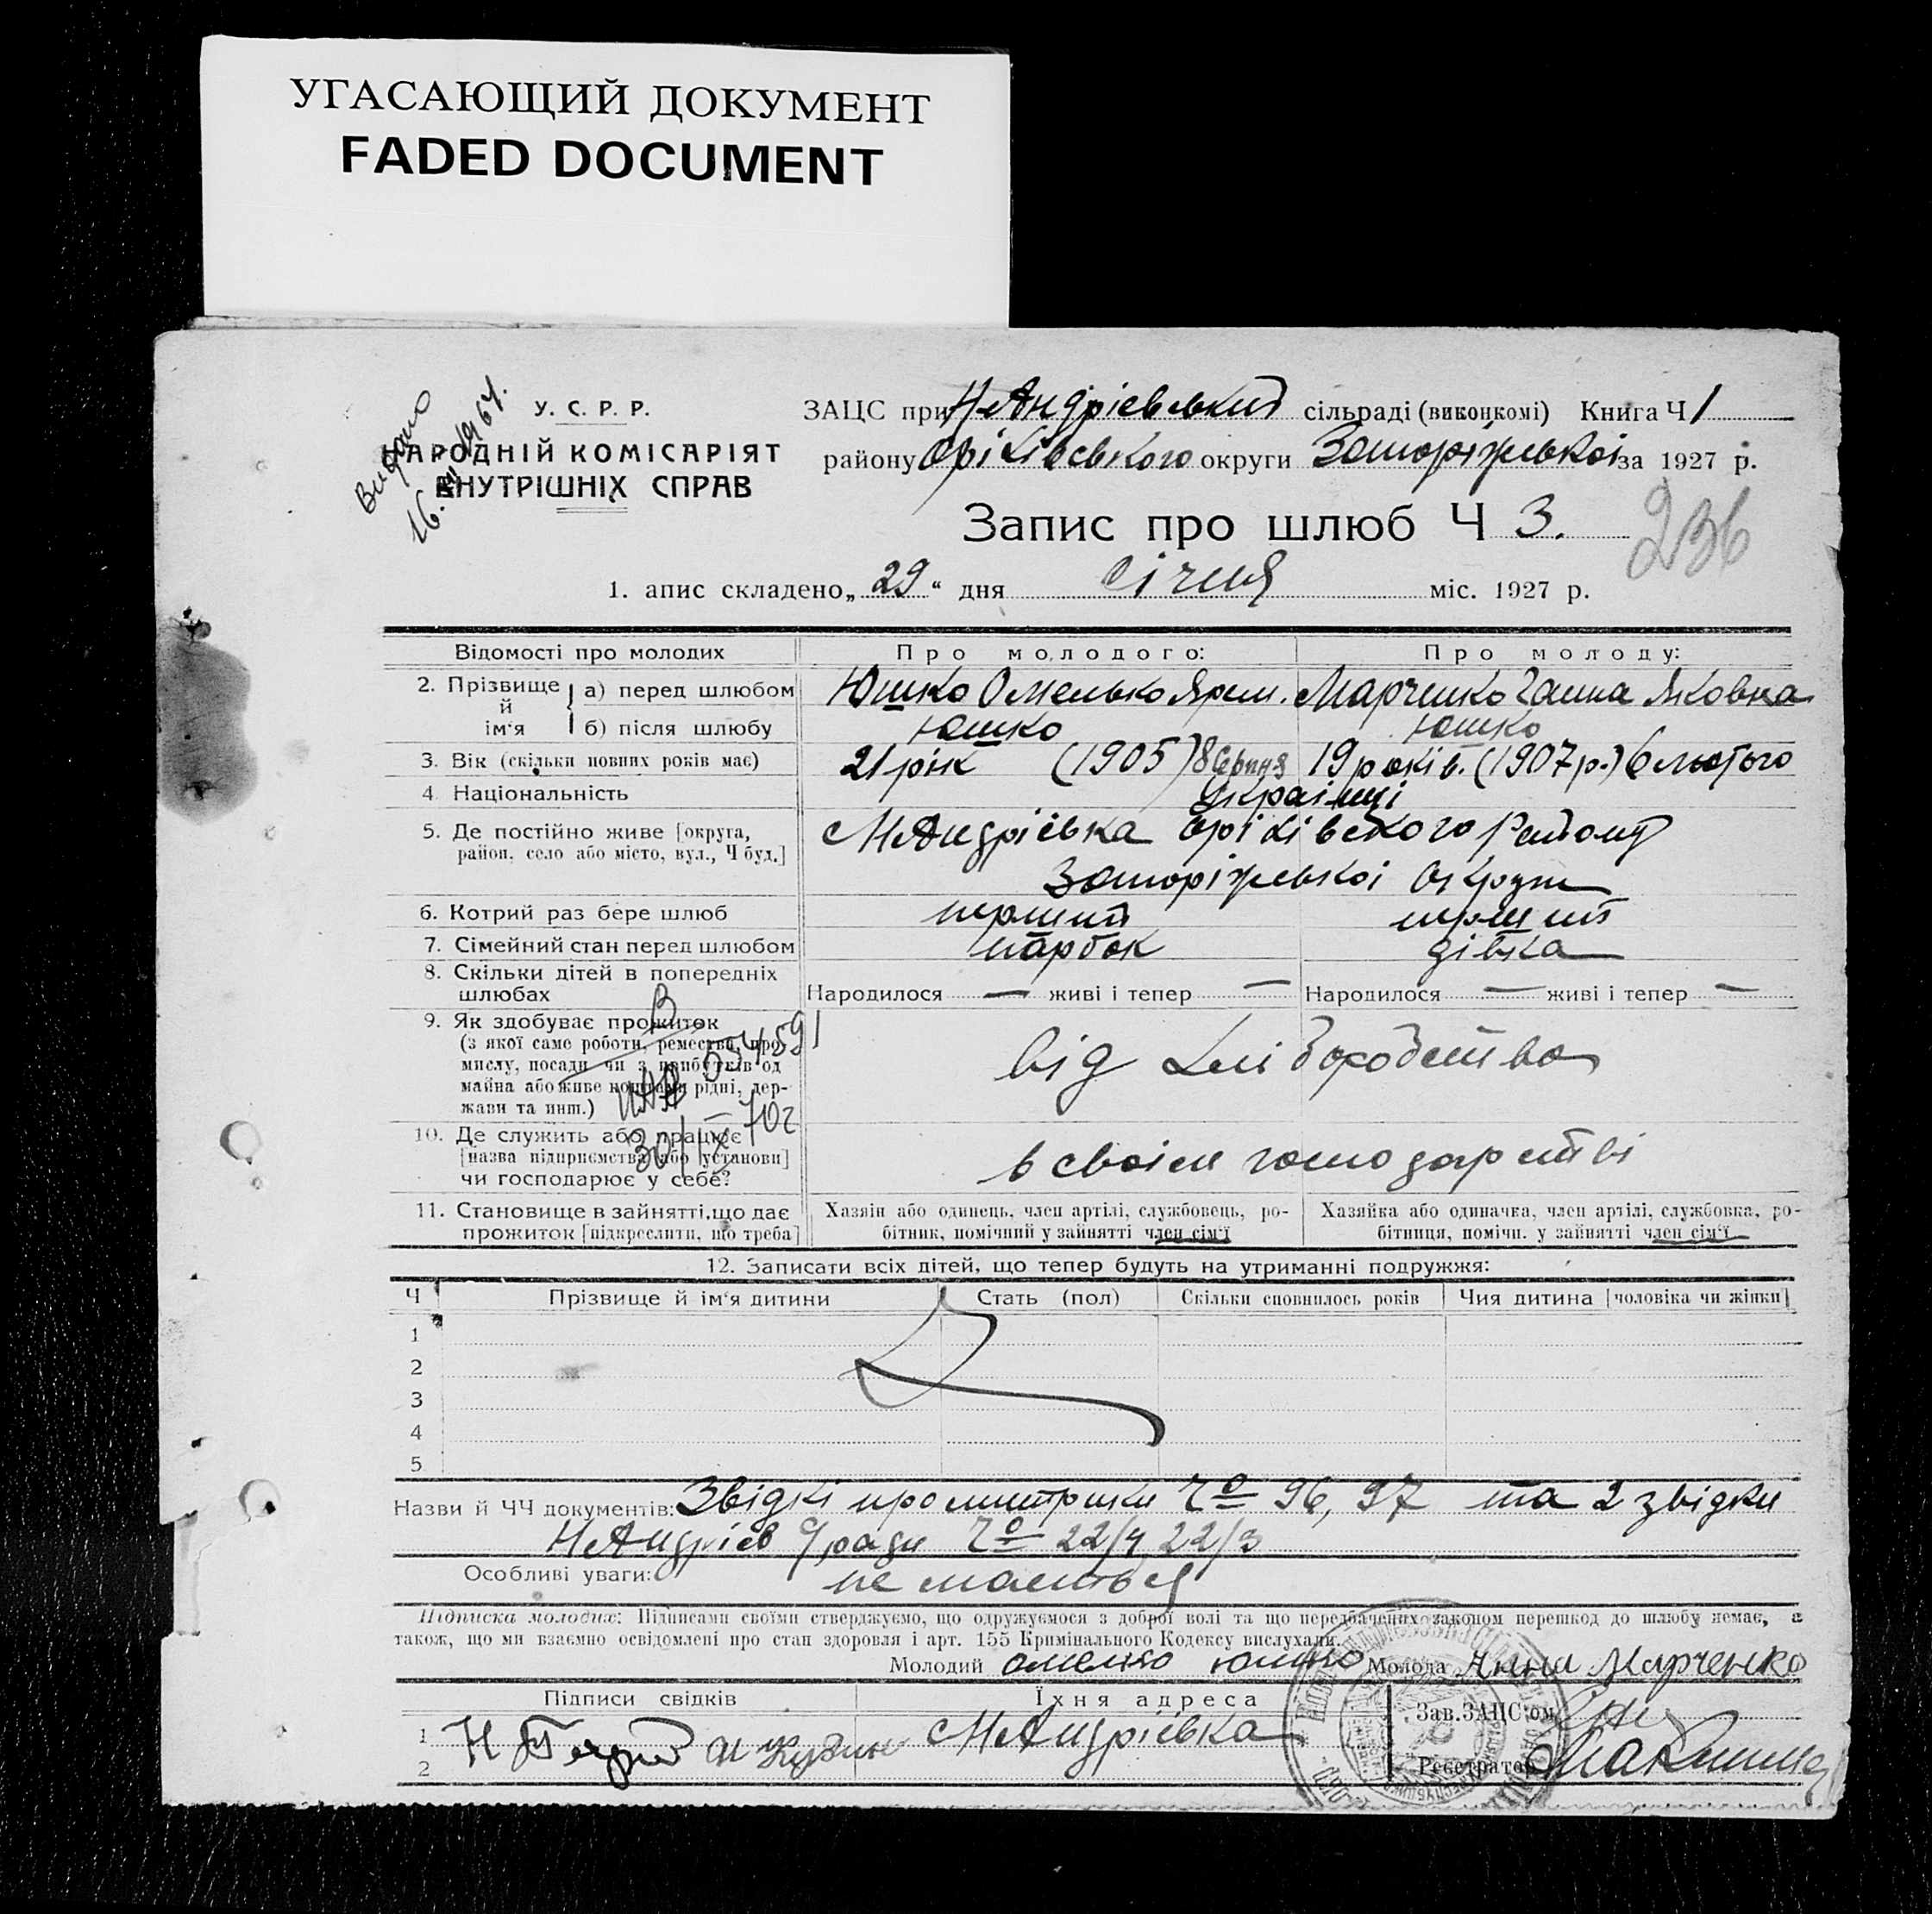 УГАСАЮЩИЙ ДОКУМЕНТ
FADED DOCUMENT
Видано
16. 1964.
У. С. Р. Р.
НАРОДНІЙ КОМІСАРІЯТ
ВНУТРІШНІХ СПРАВ
ЗАЦС при НАндріевський сільраді (виконкомі) Книга Ч 1
району Оріхівського округи Запоріжської за 1927 р.
Запис про шлюб Ч 3.
236
1. апис складено „ 29 “ дня січня міс. 1927 р.
Відомості про молодих
Про молодого:
Про молоду:
2. Прізвище й ім‘я
а) перед шлюбом
Юшко Омелько Ярем.
Марченко Ганна Яковна
б) після шлюбу
Юшко
Юшко
3. Вік (скільки повних років має)
21 рік (1905) 8 Серпня
19 років. (1907 р.) 6 лютого
4. Національність
Українці
5. Де постійно живе [округа,
район, село або місто, вул., Ч буд.]
НАндріівка Оріхівського Району
Запоріжської Округи
6. Котрий раз бере шлюб
перший
перший
7. Сімейний стан перед шлюбом
парубок
дівка
8. Скільки дітей в попередніх
шлюбах
Народилося — живі і тепер —
Народилося — живі і тепер —
9. Як здобуває прожиток
(з якої саме роботи, ремества, про-
мислу, посади чи з прибутків од
майна або живе коштами рідні, дер-
жави та инш.)
від Хліборобства
054591
30/IX 70г
10. Де служить або працює
[назва підприємства або установи]
чи господарює у себе?
в своім господарстві
11. Становище в зайнятті, що дає
прожиток [підкреслити, що треба]
Хазяін або одинець, член артілі, службовець, ро-
бітник, помічний у зайнятті член сім‘ї
Хазяйка або одиначка, член артілі, службовка, ро-
бітниця, помічн. у зайнятті член сім‘ї
12. Записати всіх дітей, що тепер будуть на утриманні подружжя:
Ч
Прізвище й ім‘я дитини
Стать (пол)
Скільки сповнилось років
Чия дитина [чоловіка чи жінки]
1
2
3
4
5
Назви й ЧЧ документів: Звідкі про метрики Ч 96, 97 та 2 звідки
НАндріев С/ради Ч 22/4 22/3
Особливі уваги: не маеться
Підписка молодих: Підписами своїми стверджуємо, що одружуємося з доброї волі та що передбачених законом перешкод до шлюбу немає, а
також, що ми взаємно освідомлені про стан здоровля і арт. 155 Кримінального Кодексу вислухали.
Молодий Омелко Юшко Молода Анна Марченко
Підписи свідків
Їхня адреса
Зав. ЗАЦС‘ом
1
2
НАндріівка
Реєстратор